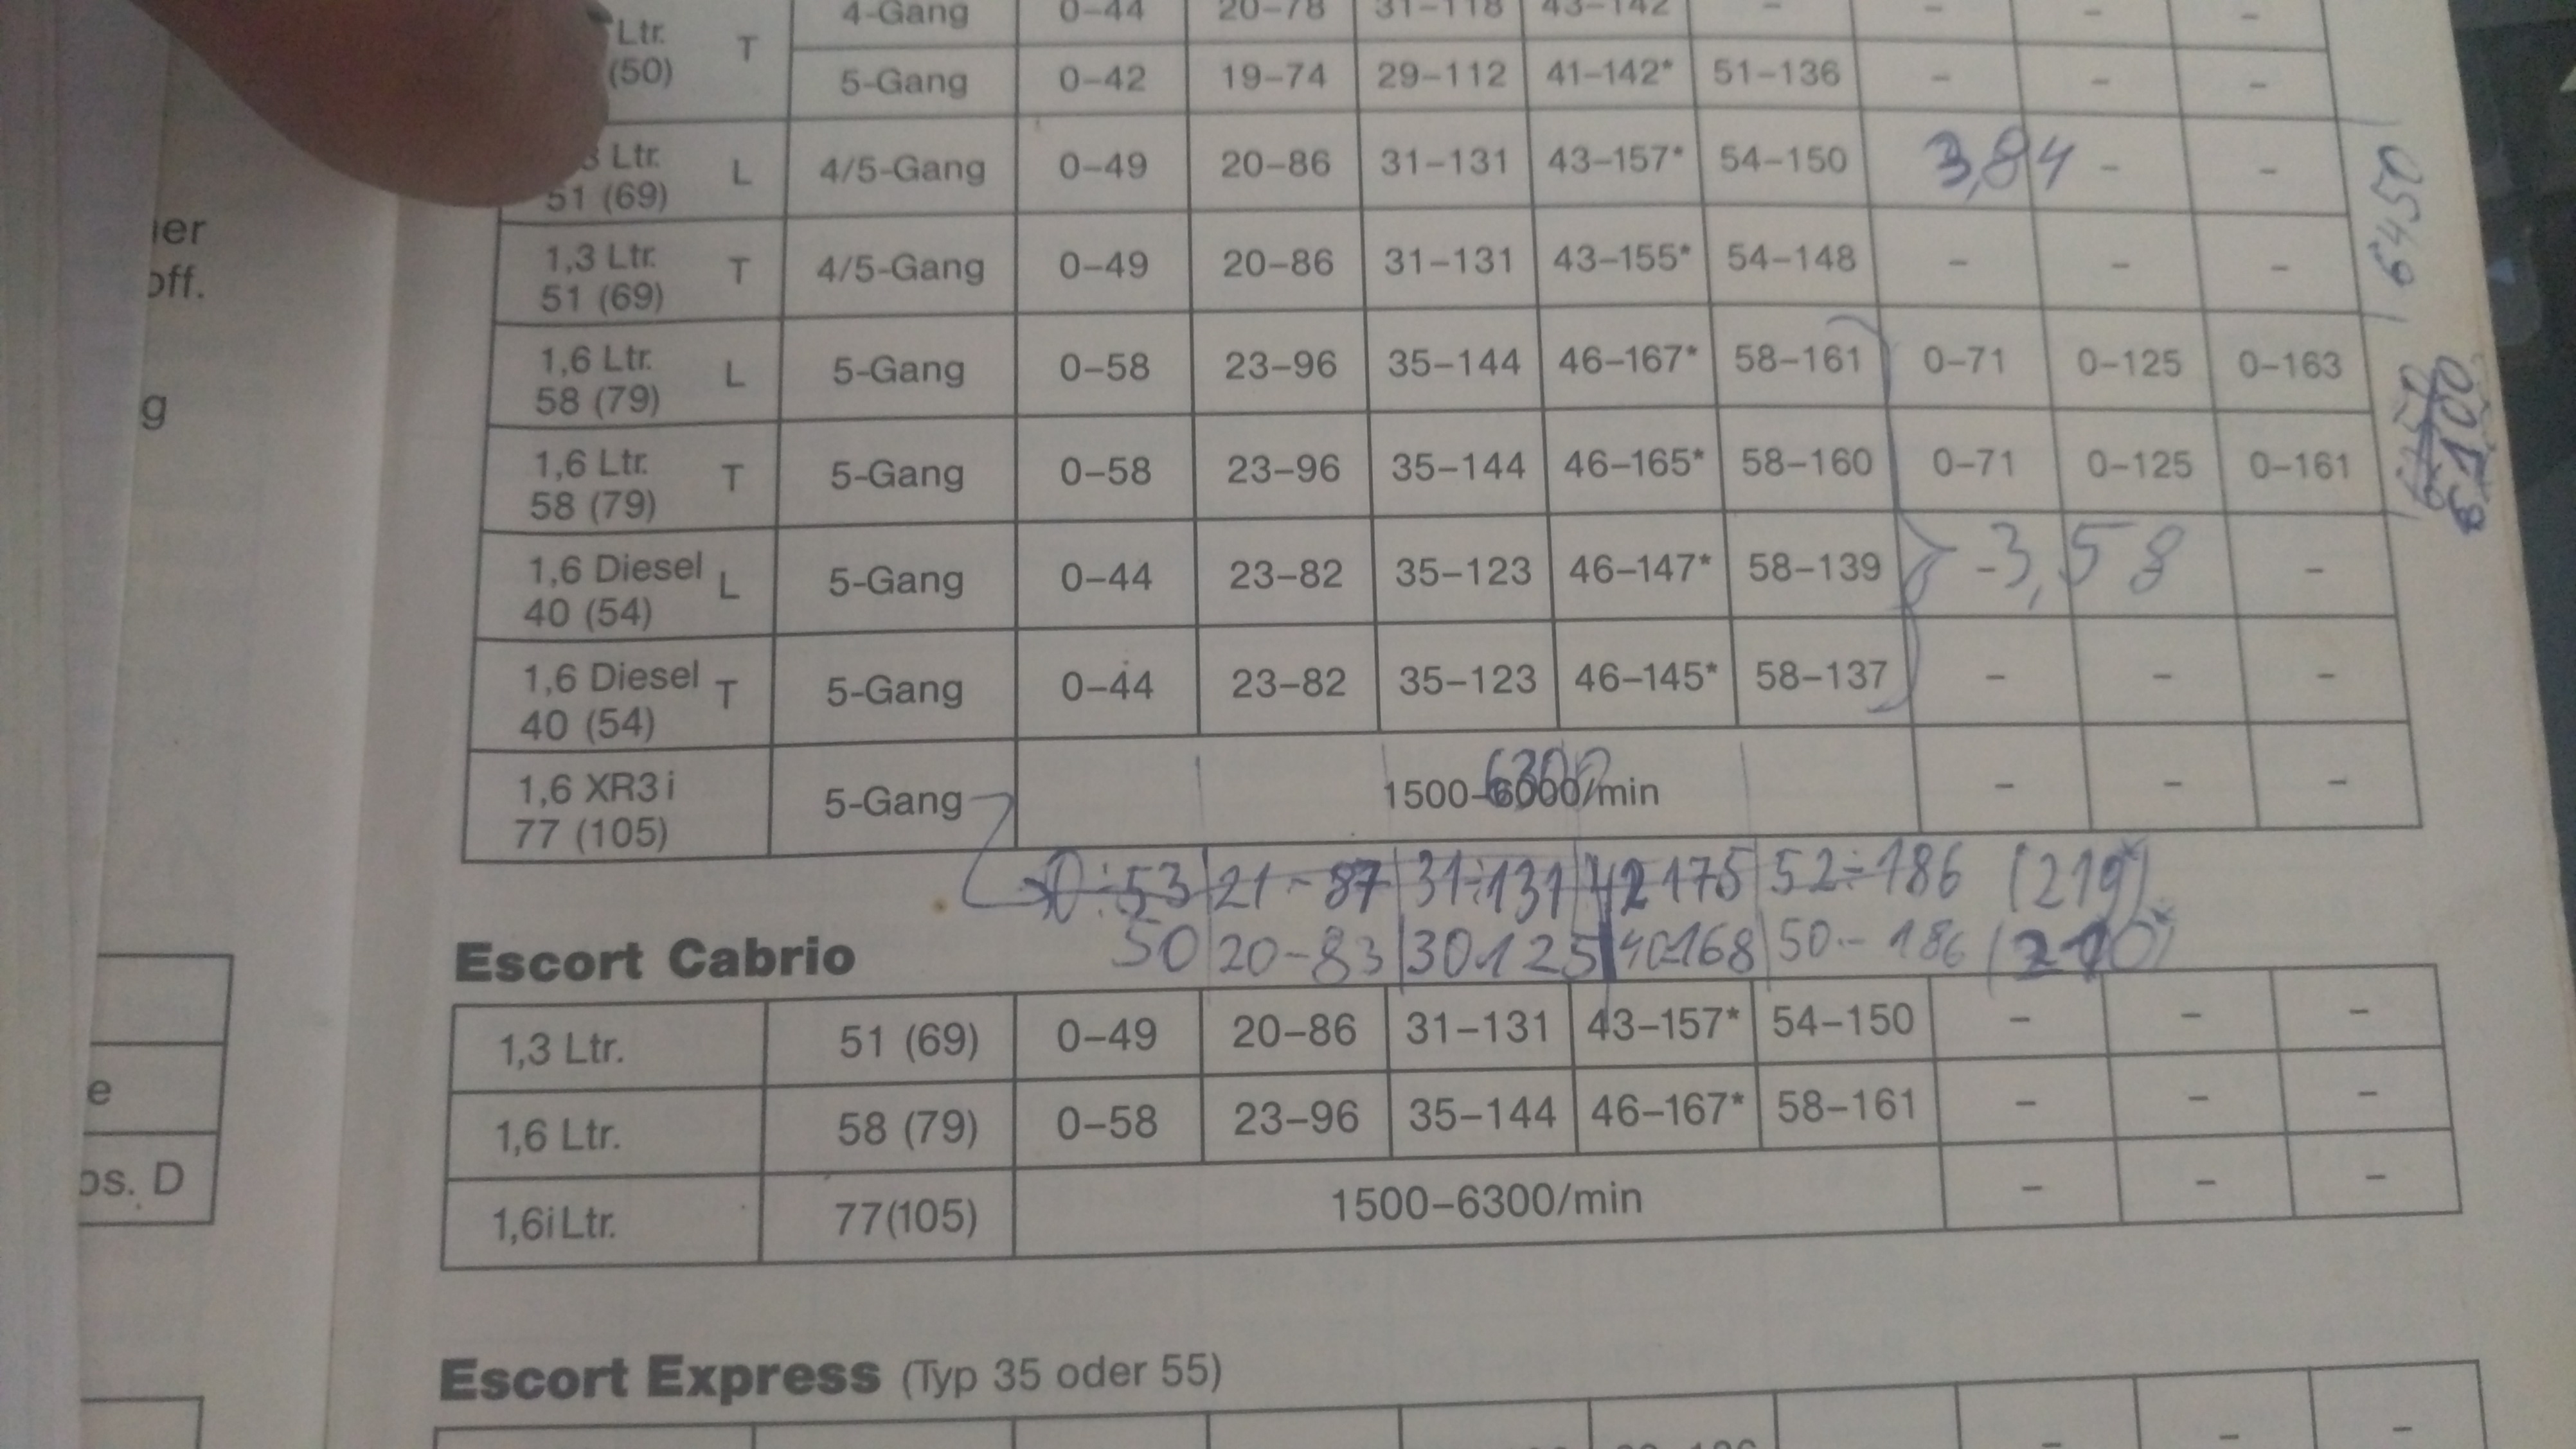 4-Gang 0–44 20–78 31–118 43–142 – – – –
Ltr. T
(50) 5-Gang 0–42 19–74 29–112 41–142* 51–136 – – –
Ltr. L 4/5-Gang 0–49 20–86 31–131 43–157* 54–150 3,84 – –
51 (69)
6450
1,3 Ltr. T 4/5-Gang 0–49 20–86 31–131 43–155* 54–148 – – –
51 (69)
1,6 Ltr. L 5-Gang 0–58 23–96 35–144 46–167* 58–161 0–71 0–125 0–163
58 (79)
1,6 Ltr. T 5-Gang 0–58 23–96 35–144 46–165* 58–160 0–71 0–125 0–161
58 (79)
1,6 Diesel L 5-Gang 0–44 23–82 35–123 46–147* 58–139 -3,58 –
40 (54)
1,6 Diesel T 5-Gang 0–44 23–82 35–123 46–145* 58–137 – – –
40 (54)
1,6 XR3i 5-Gang 1500–6300/min – – –
77 (105)
0÷53 21-87 31÷131 42 175 52÷186 (219*)
50 20-83 30-125 40-168 50-186 (210*)
Escort Cabrio
1,3 Ltr. 51 (69) 0–49 20–86 31–131 43–157* 54–150 – – –
1,6 Ltr. 58 (79) 0–58 23–96 35–144 46–167* 58–161 – – –
1,6i Ltr. 77(105) 1500–6300/min – – –
Escort Express (Typ 35 oder 55)
– – –
ier
off.
g
e
os. D